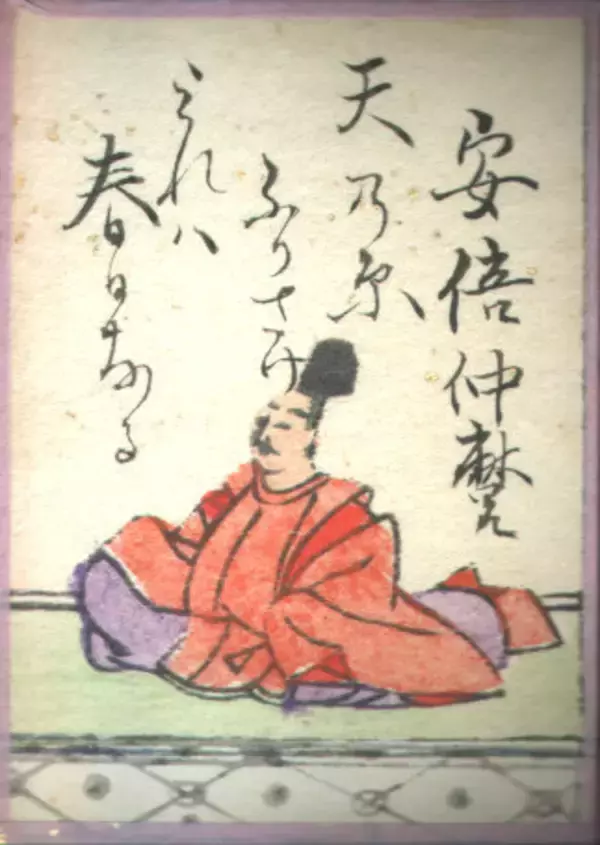 安倍仲麿
天乃原
ふりさけ
みれハ
春日なる